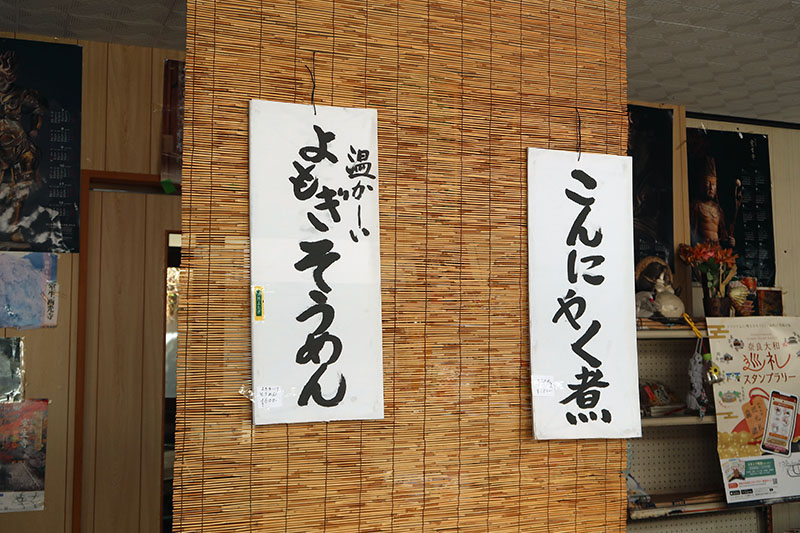 温かーい
よもぎそうめん
こんにやく煮
奈良大和
巡礼
スタンプラリー